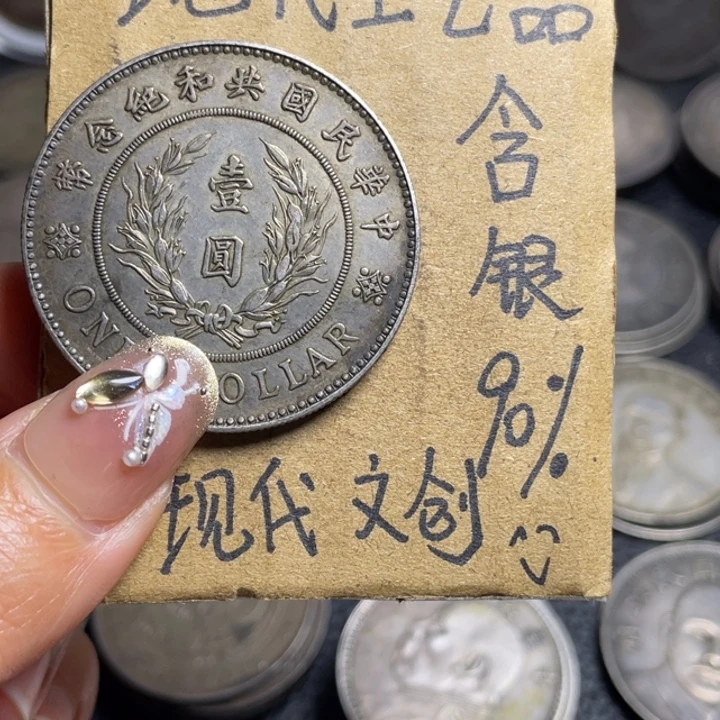 现代工艺品
中華民國共和紀念幣
壹圓
ONE DOLLAR
含银90%
现代文创